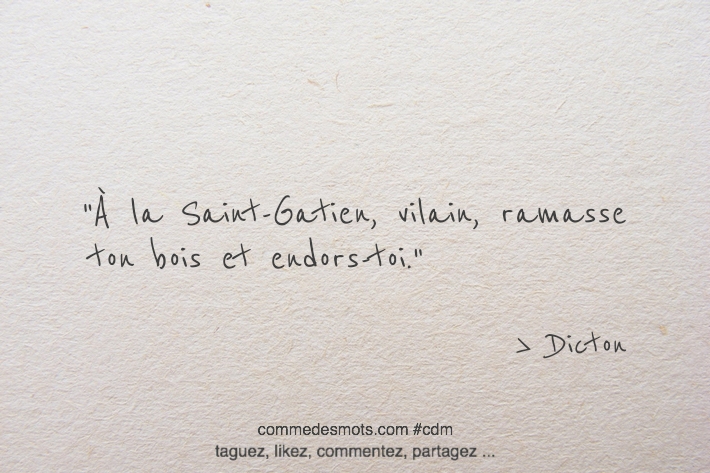 "À la Saint-Gatien, vilain, ramasse
ton bois et endors-toi."
> Dicton
commedesmots.com #cdm
taguez, likez, commentez, partagez ...